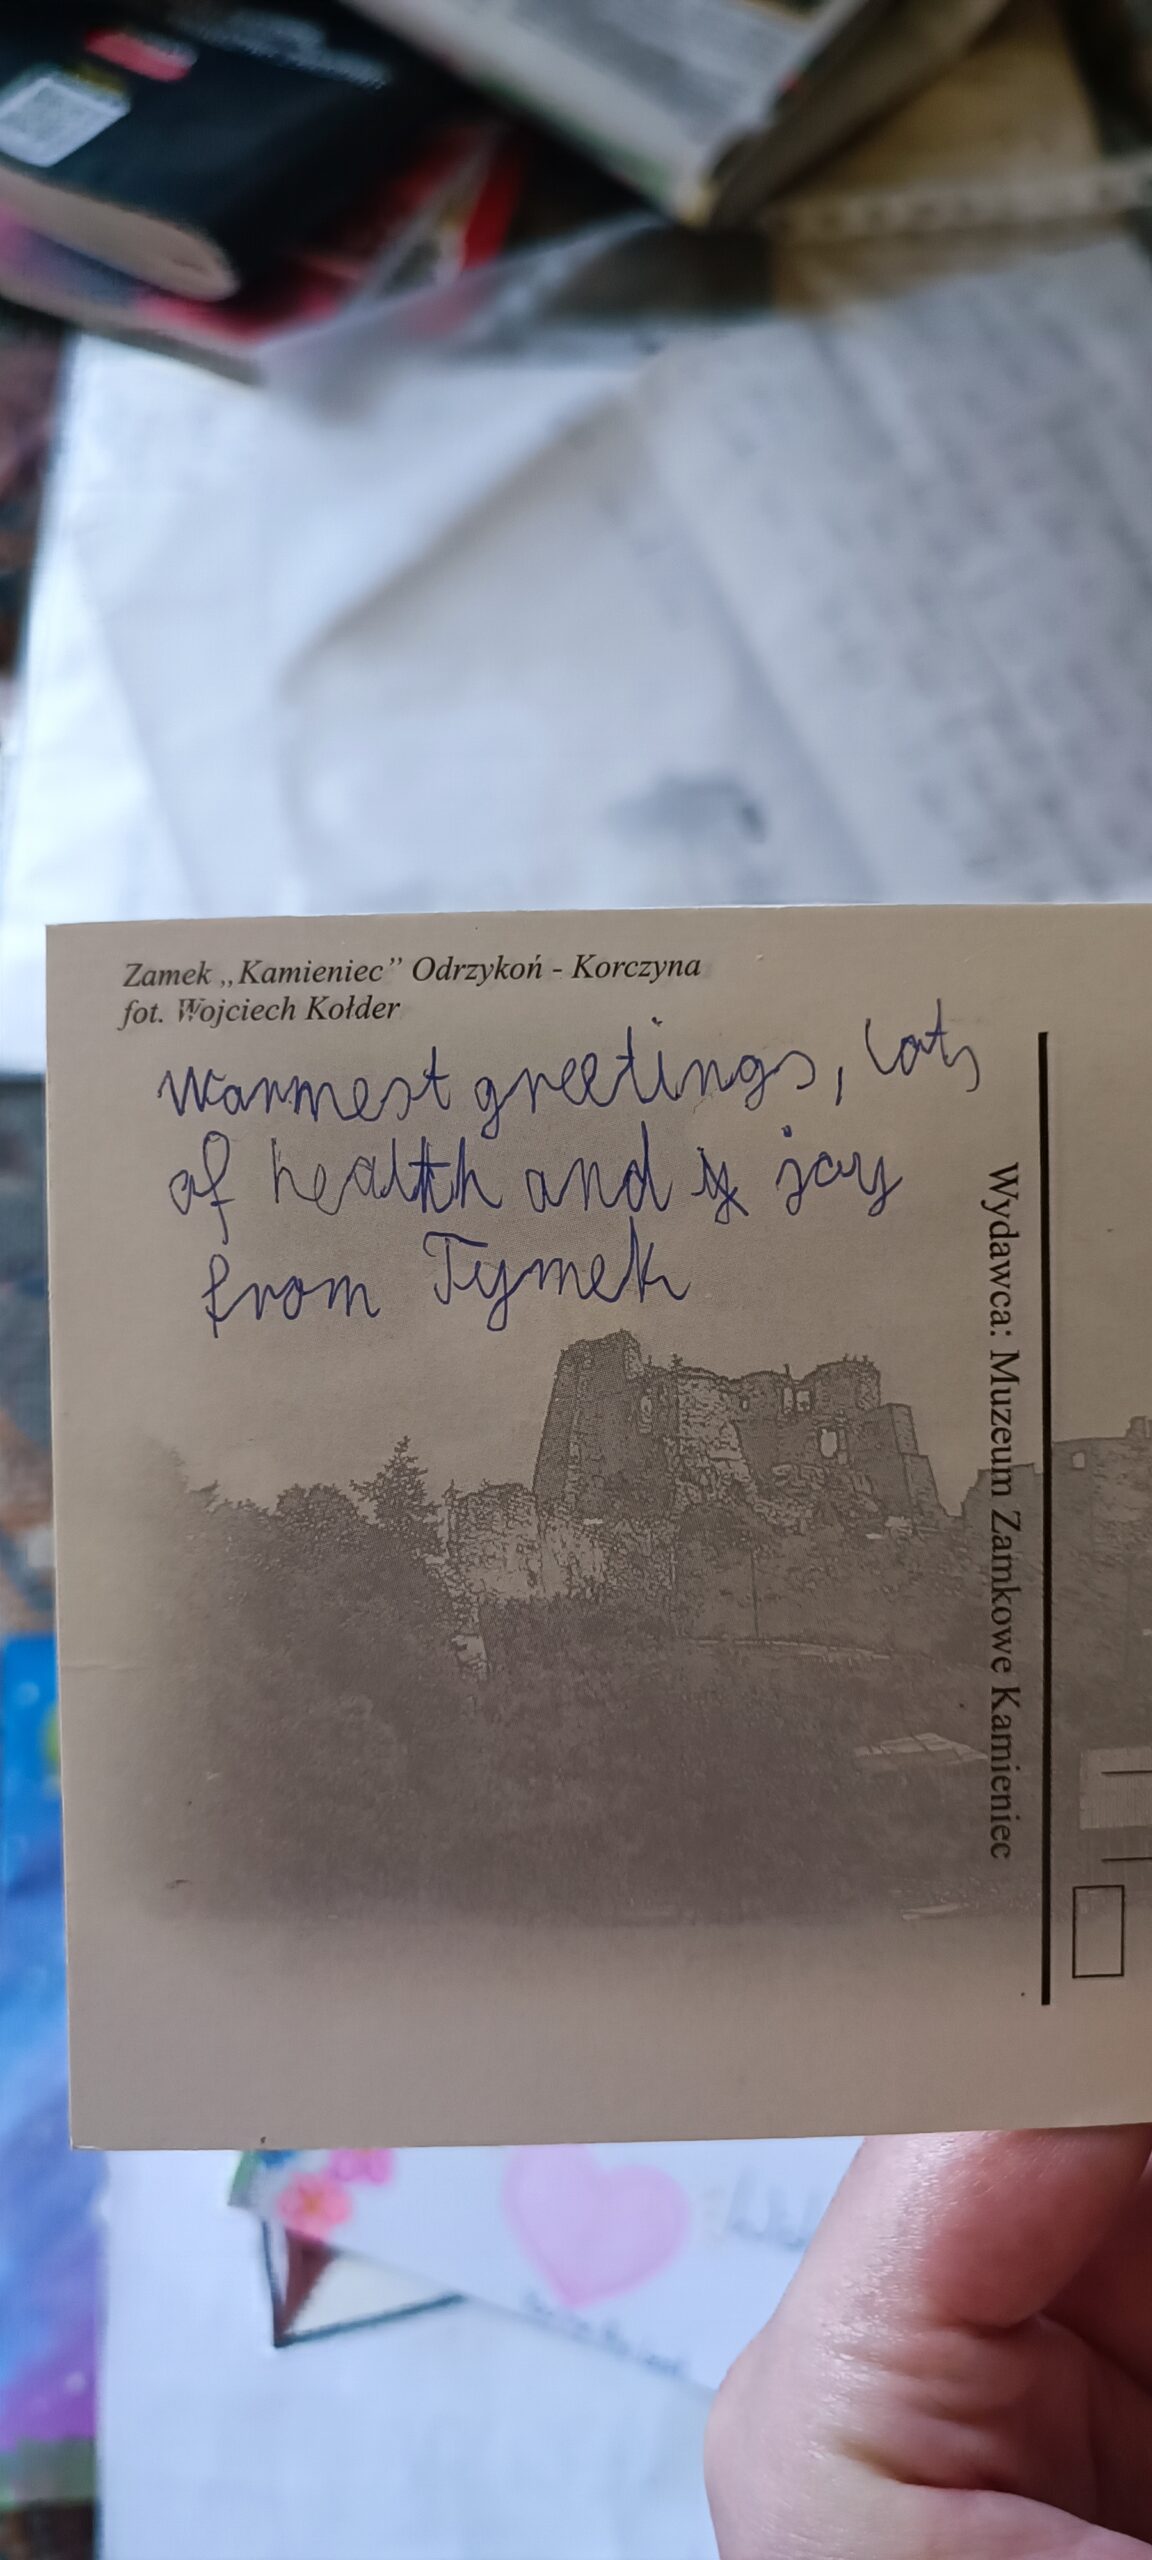 Zamek „Kamieniec” Odrzykoń - Korczyna
fot. Wojciech Kołder
Warmest greetings, lots
of health and joy
from Tymek
Wydawca: Muzeum Zamkowe Kamieniec